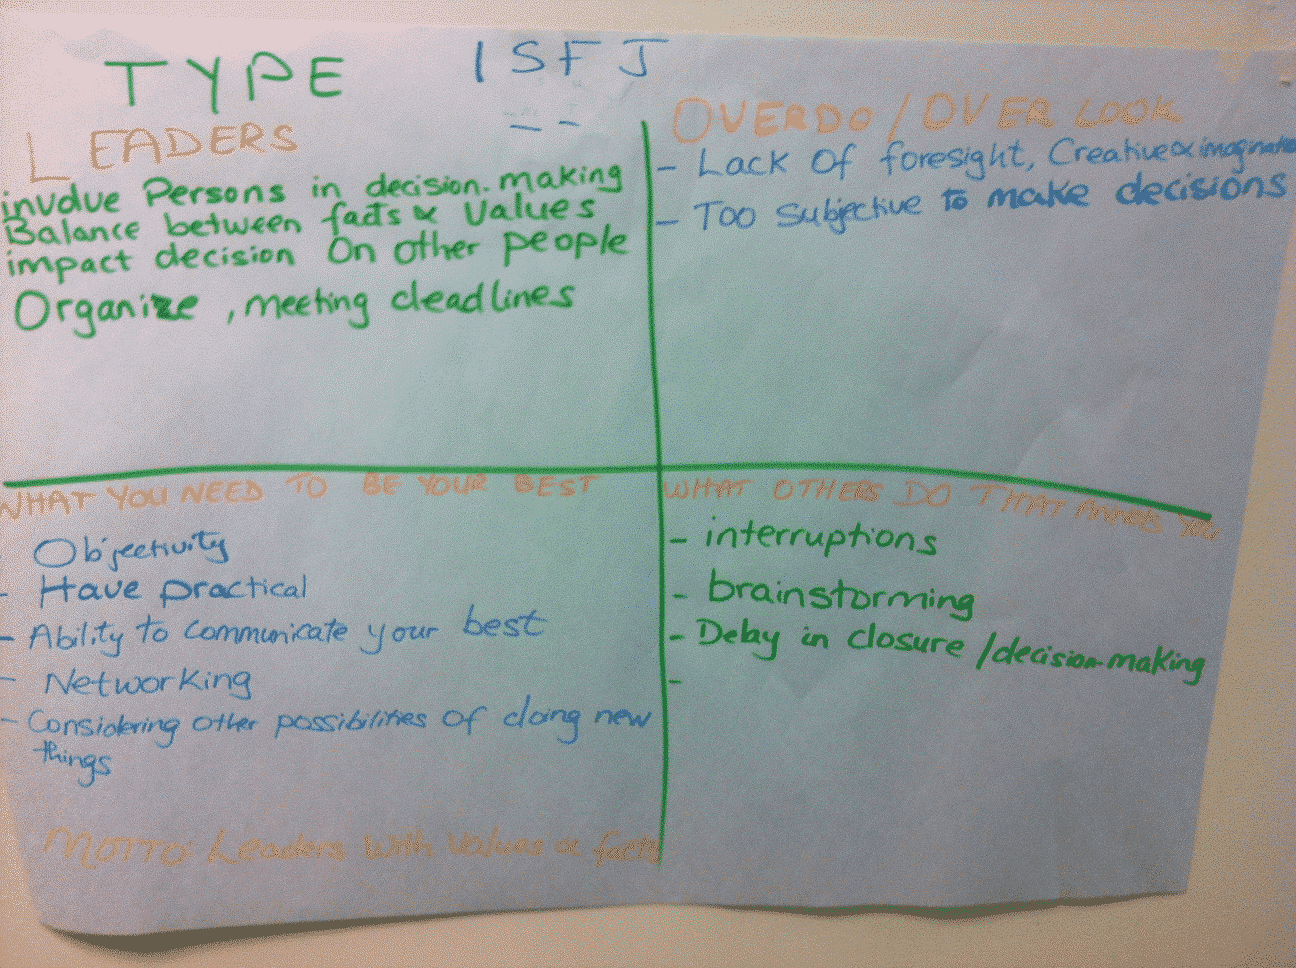 TYPE ISFJ
LEADERS
involve Persons in decision-making
Balance between facts & values
impact decision On other people
Organize, meeting deadlines
OVERDO / OVER LOOK
- Lack of foresight, Creative & imaginate
- Too subjective to make decisions
WHAT YOU NEED TO BE YOUR BEST
Objectivity
- Have practical
- Ability to communicate your best
- Networking
- Considering other possibilities of doing new
things
MOTTO Leaders with values & facts
WHAT OTHERS DO THAT YOU
- interruptions
- brainstorming
- Delay in closure / decision-making
-